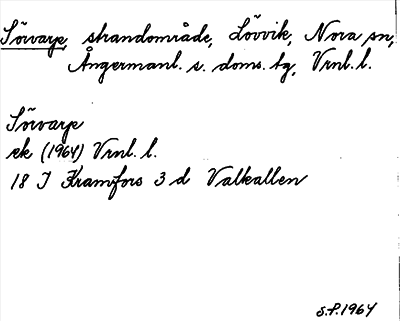 Sörvarpe, strandområde, Lövvik, Nora sn,
Ångermanl. s. doms. tg, Vrnl. l.
Sörvarpe
ek (1964) Vrnl. l.
18 I Kramfors 3 d Valkallen
S.P. 1964